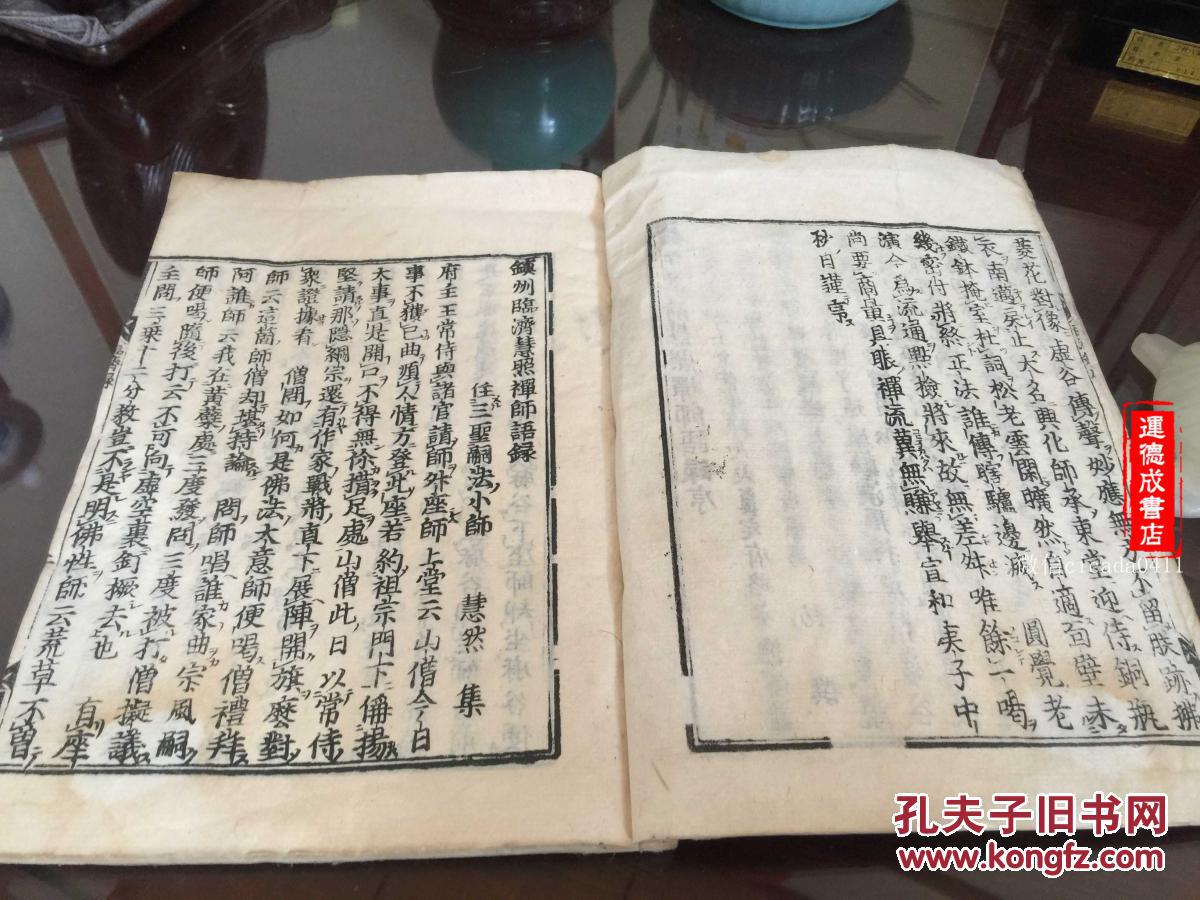 菱花對像虛谷傳聲妙應無方不留朕跡拂
衣南邁戾止大名興化師承東堂迎侍銅瓶
鐵鉢掩室杜詞松老雲閑曠然自適面壁未
幾密付將終正法誰傳瞎驢邊滅圓覺老
演今為流通點撿將來故無差舛唯餘一喝
尚要商量且眼禪流冀無賺舉宣和庚子中
秋日謹序
鎮州臨濟慧照禪師語録
住三聖嗣法小師 慧然 集
府主王常侍與諸官請師升座師上堂云山僧今日
事不獲已曲順人情方登此座若約祖宗門下稱揚
大事直是開口不得無你措足處山僧此日以常侍
堅請那隱綱宗還有作家戰將直下展陣開旗麼對
衆證據看 僧問如何是佛法大意師便喝僧禮拜
師云這箇師僧却堪持論 問師唱誰家曲宗風嗣
阿誰師云我在黃蘗處三度發問三度被打僧擬議
師便喝隨後打云不可向虛空裏釘橛去也 有座
主問三乘十二分教豈不是明佛性師云荒草不曽
運德成書店
微信cicada0411
孔夫子旧书网
www.kongfz.com